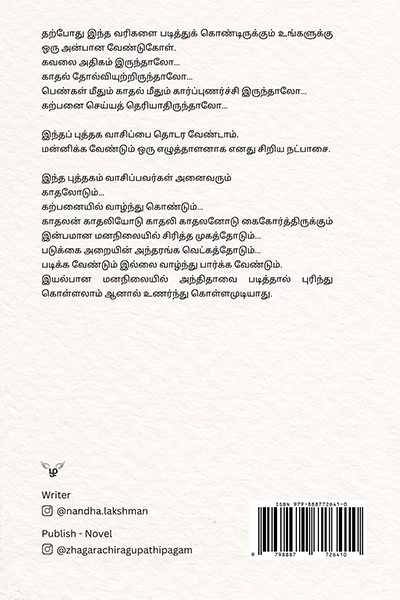 தற்போது இந்த வரிகளை படித்துக் கொண்டிருக்கும் உங்களுக்கு
ஒரு அன்பான வேண்டுகோள்.
கவலை அதிகம் இருந்தாலோ...
காதல் தோல்வியுற்றிருந்தாலோ...
பெண்கள் மீதும் காதல் மீதும் கார்ப்புணர்ச்சி இருந்தாலோ...
கற்பனை செய்யத் தெரியாதிருந்தாலோ...
இந்தப் புத்தக வாசிப்பை தொடர வேண்டாம்.
மன்னிக்க வேண்டும் ஒரு எழுத்தாளனாக எனது சிறிய நட்பாசை.
இந்த புத்தகம் வாசிப்பவர்கள் அனைவரும்
காதலோடும்...
கற்பனையில் வாழ்ந்து கொண்டும்...
காதலன் காதலியோடு காதலி காதலனோடு கைகோர்த்திருக்கும்
இன்பமான மனநிலையில் சிரித்த முகத்தோடும்...
படுக்கை அறையின் அந்தரங்க வெட்கத்தோடும்...
படிக்க வேண்டும் இல்லை வாழ்ந்து பார்க்க வேண்டும்.
இயல்பான மனநிலையில் அந்திதாவை படித்தால் புரிந்து
கொள்ளலாம் ஆனால் உணர்ந்து கொள்ளமுடியாது.
ழ
Writer
@nandha.lakshman
Publish - Novel
@zhagarachiragupathipagam
ISBN 979-888772641-0
9 798887 726410